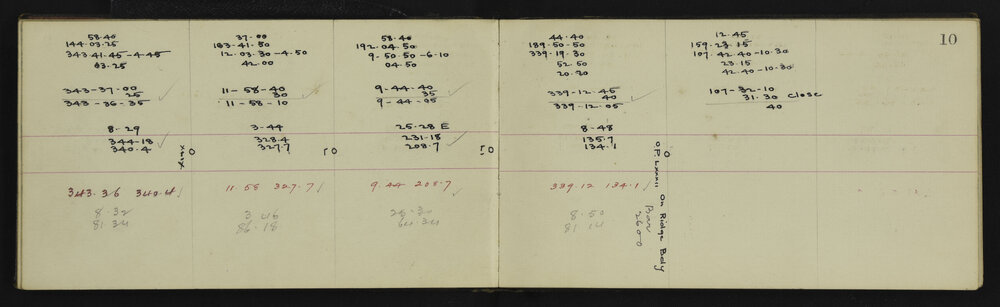 10
58.40
144.03.25
343 41.45-4.45
03.25
343-37-00
25
343-36-35
8-29
344-18
340.4
xxxx
343.36 340.4
8.32
81.34
37.00
183-41-50
12.03.30-4.50
42.00
11-58-40
30
11-58-10
3-44
328.4
327.7
11 58 327.7
3 46
86.18
58.40
192.04.50
9-50 50-6.10
04.50
9-44-40
35
9-44-05
25-28 E
231-18
208.7
9.44 208.7
44.40
189.50.50
339.19.30
52.50
20.20
339-12-45
40
339-12.05
8-48
135.7
134.1
339.12 134.1
8.50
81 14
On Ridge Body
Bar
2600
12.45
159.23.15
107.42 40-10.30
23.15
42.40-10.30
107-32-10
31.30 close
40